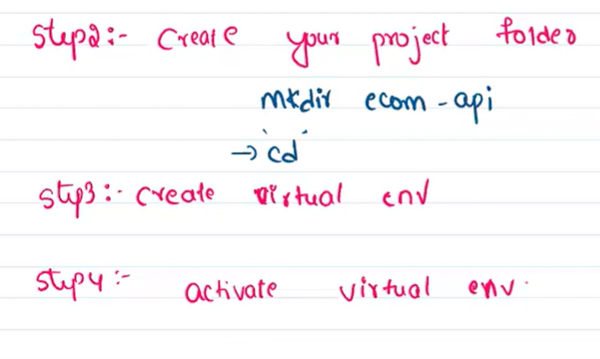 Step2:- Create your project folder
mkdir ecom-api
→ cd
Step3:- Create virtual env
Step4:- activate virtual env.